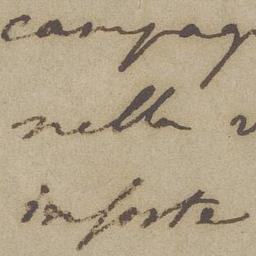 campag
nella v
insorte